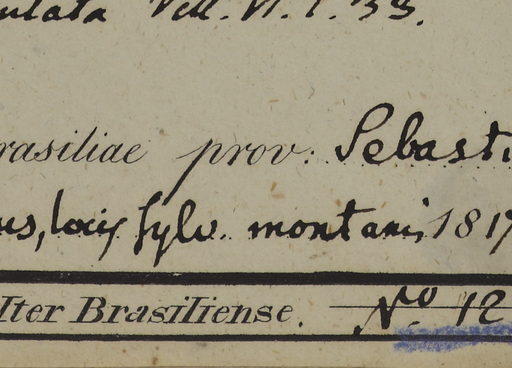 ulata Vell. N. t. 33.
rasiliae prov. Sebasti
us, locis sylv. montanis 1817
Iter Brasiliense. No 12